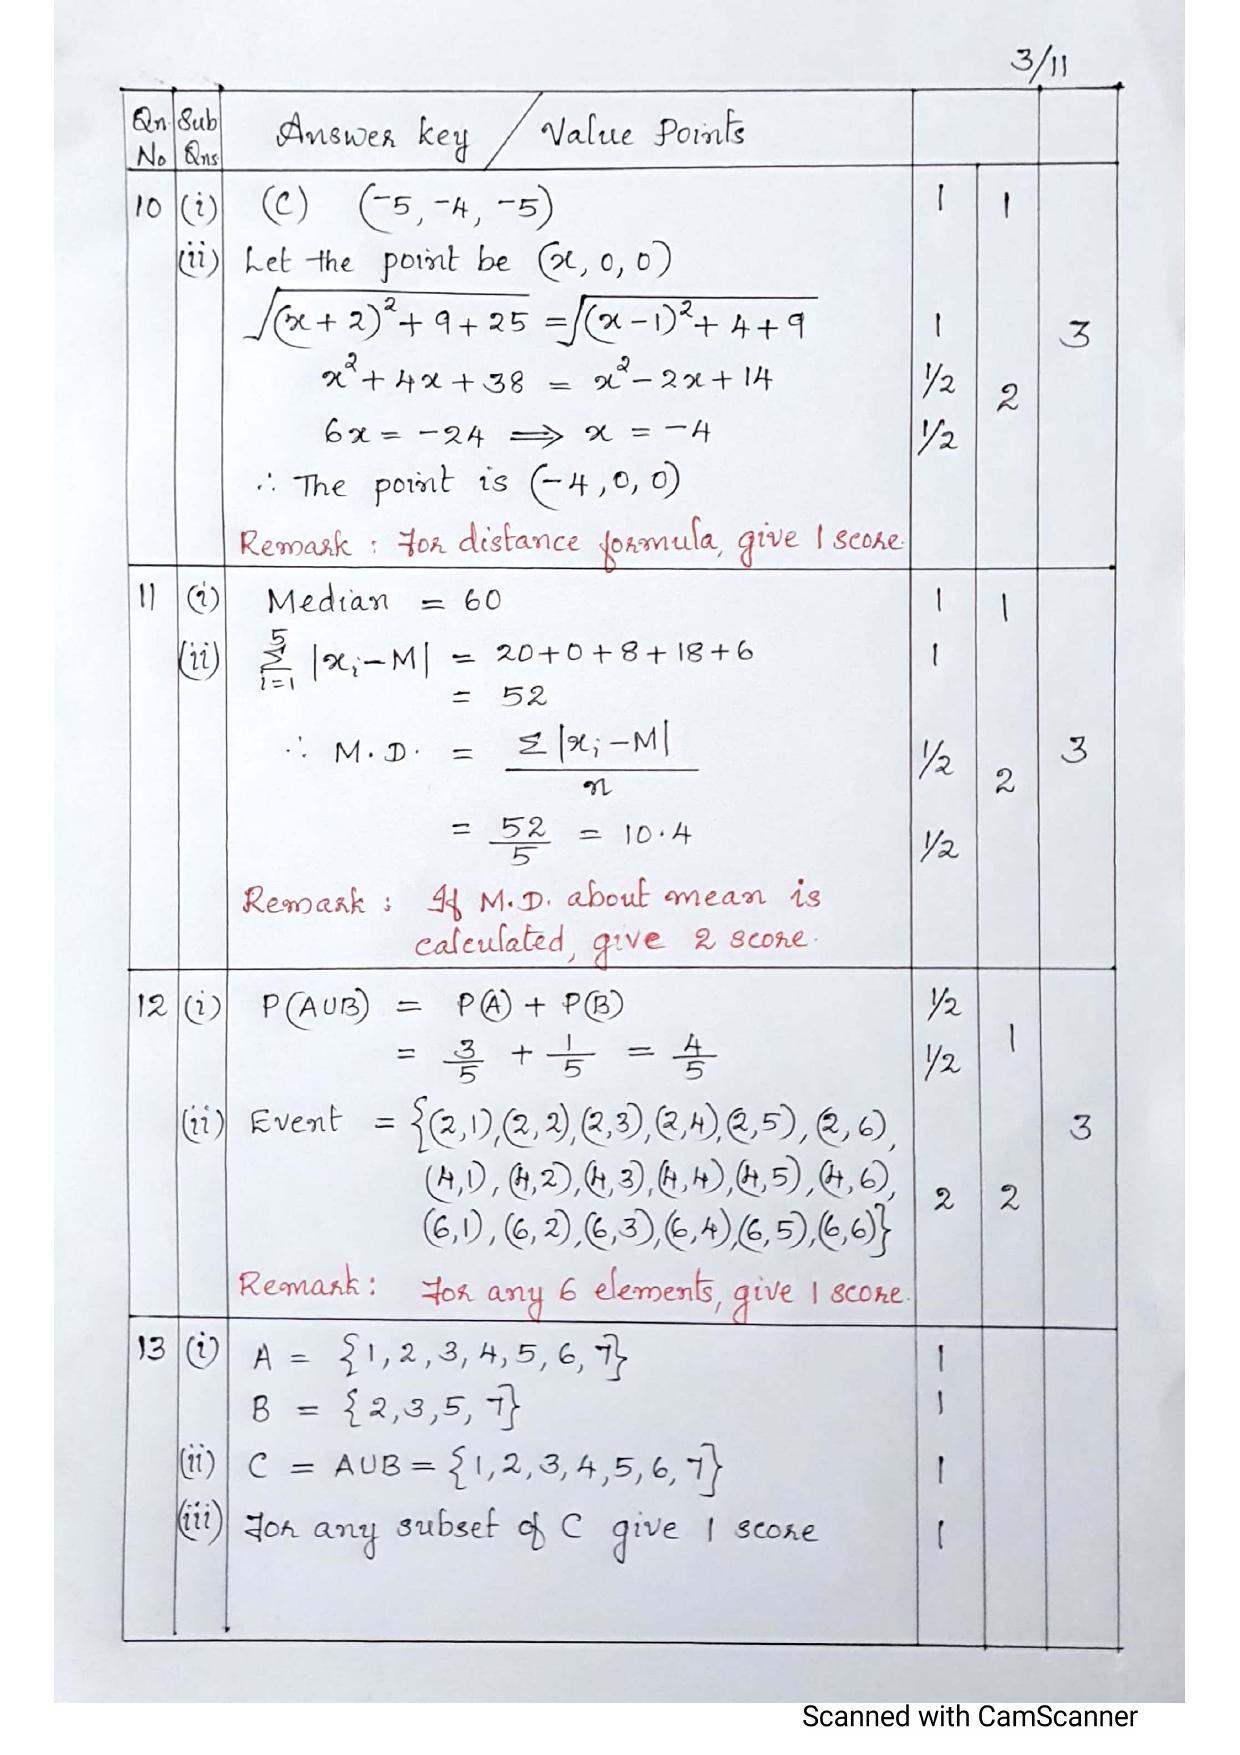 3/11
Qn No Sub Qns Answer key / Value Points
10 (i) (C) (-5, -4, -5) 1 1
(ii) Let the point be (x, 0, 0)
√(x+2)²+9+25 = √(x-1)²+4+9 1 3
x²+4x+38 = x²-2x+14 1/2 2
6x = -24 ⟹ x = -4 1/2
∴ The point is (-4, 0, 0)
Remark : For distance formula, give 1 score.
11 (i) Median = 60 1 1
(ii) 5 Σ i=1 |xi-M| = 20+0+8+18+6 1
= 52
∴ M.D. = Σ|xi-M| / n 1/2 2 3
= 52/5 = 10.4 1/2
Remark : If M.D. about mean is
calculated, give 2 score.
12 (i) P(A∪B) = P(A) + P(B) 1/2
= 3/5 + 1/5 = 4/5 1/2 1
(ii) Event = {(2,1),(2,2),(2,3),(2,4),(2,5),(2,6), 3
(4,1),(4,2),(4,3),(4,4),(4,5),(4,6), 2 2
(6,1),(6,2),(6,3),(6,4),(6,5),(6,6)}
Remark : For any 6 elements, give 1 score.
13 (i) A = {1,2,3,4,5,6,7} 1
B = {2,3,5,7} 1
(ii) C = A∪B = {1,2,3,4,5,6,7} 1
(iii) For any subset of C give 1 score 1
Scanned with CamScanner